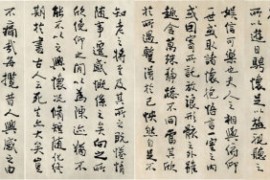 娛信可樂也夫人之相與俯仰
一世或取諸懷抱悟言一室之內
或因寄所託放浪形骸之外雖
趣舍萬殊靜躁不同當其欣
於所遇暫得於己快然自足不
知老之將至及其所之既惓情
隨事遷感慨係之矣向之所
欣俛仰之間以為陳迹猶不
能不以之興懷況脩短隨化終
期於盡古人云死生亦大矣豈
不痛哉每攬昔人興感之由